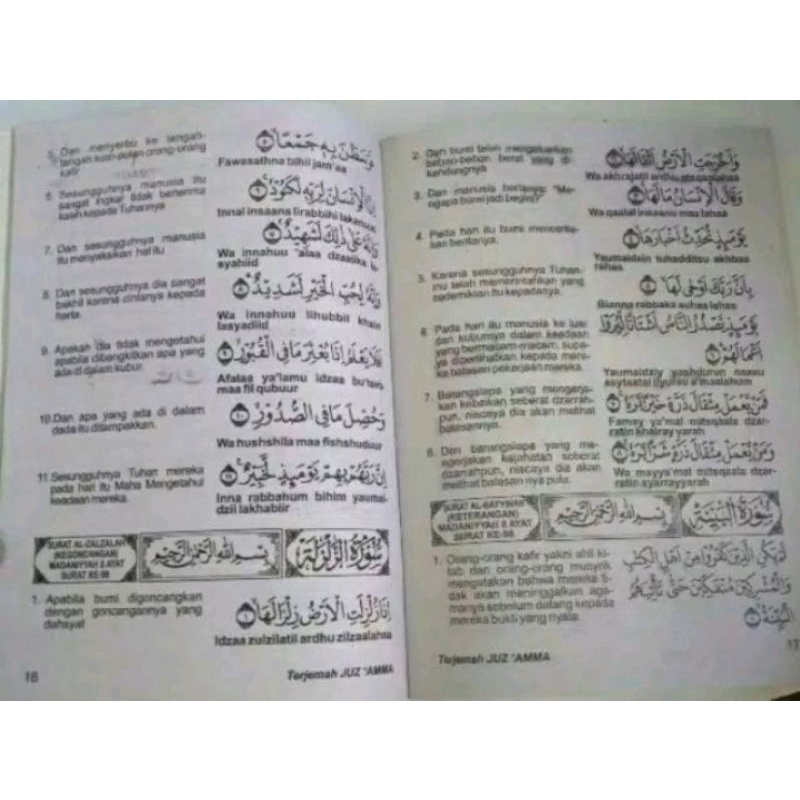 5. Dan menyerbu ke tengah-
tengah kumpulan orang-orang
kafir
فَوَسَطْنَ بِهٖ جَمْعًا ۝٥
Fawasathna bihii jam'aa
6. Sesungguhnya manusia itu
sangat ingkar tidak berterima
kasih kepada Tuhannya
اِنَّ الْاِنْسَانَ لِرَبِّهٖ لَكَنُوْدٌ ۝٦
Innal insaana lirabbihii lakanuud
7. Dan sesungguhnya manusia
itu menyaksikan hal itu
وَاِنَّهٗ عَلٰى ذٰلِكَ لَشَهِيْدٌ ۝٧
Wa innahuu 'alaa dzaalika la-
syahiid
8. Dan sesungguhnya dia sangat
bakhil karena cintanya kepada
harta.
وَاِنَّهٗ لِحُبِّ الْخَيْرِ لَشَدِيْدٌ ۝٨
Wa innahuu lihubbil khairi
lasyadiid
9. Apakah dia tidak mengetahui
apabila dibangkitkan apa yang
ada di dalam kubur.
اَفَلَا يَعْلَمُ اِذَا بُعْثِرَ مَا فِى الْقُبُوْرِ ۝٩
Afalaa ya'lamu idzaa bu'tsira
maa fil qubuur
10. Dan apa yang ada di dalam
dada itu ditampakkan.
وَحُصِّلَ مَا فِى الصُّدُوْرِ ۝١٠
Wa hushshila maa fishshuduur
11. Sesungguhnya Tuhan mereka
pada hari itu Maha Mengetahui
keadaan mereka.
اِنَّ رَبَّهُمْ بِهِمْ يَوْمَئِذٍ لَّخَبِيْرٌ ۝١١
Inna rabbahum bihim yaumai-
dzil lakhabiir
SURAT AL-ZALZALAH
(KEGONCANGAN)
MADANIYYAH 8 AYAT
SURAT KE-99
بِسْمِ اللهِ الرَّحْمٰنِ الرَّحِيْمِ
سُوْرَةُ الزَّلْزَلَةِ
1. Apabila bumi digoncangkan
dengan goncangannya yang
dahsyat
اِذَا زُلْزِلَتِ الْاَرْضُ زِلْزَالَهَا ۝١
Idzaa zulzilatil ardhu zilzaalahaa
16
Terjemah JUZ 'AMMA
2. Dan bumi telah mengeluarkan
beban-beban berat yang di-
kandungnya
وَاَخْرَجَتِ الْاَرْضُ اَثْقَالَهَا ۝٢
Wa akhrajatil ardhu atsqaalahaa
3. Dan manusia bertanya: "Me-
ngapa bumi jadi begini?"
وَقَالَ الْاِنْسَانُ مَا لَهَا ۝٣
Wa qaalal insaanu maa lahaa
4. Pada hari itu bumi mencerite-
kan beritanya.
يَوْمَئِذٍ تُحَدِّثُ اَخْبَارَهَا ۝٤
Yaumaidzin tuhadditsu akhbaa
rahaa
5. Karena sesungguhnya Tuhan-
mu telah memerintahkan yang
sedemikian itu kepadanya.
بِاَنَّ رَبَّكَ اَوْحٰى لَهَا ۝٥
Bianna rabbaka auhaa lahaa
6. Pada hari itu manusia ke luar
dari kuburnya dalam keadaan
yang bermacam-macam, supa-
ya diperlihatkan kepada mere-
ka balasan pekerjaan mereka.
يَوْمَئِذٍ يَّصْدُرُ النَّاسُ اَشْتَاتًا لِّيُرَوْا
اَعْمَالَهُمْ ۝٦
Yaumaidziy yashdurun naasu
asytaatal liyurau a'maalahum
7. Barangsiapa yang mengerja-
kan kebaikan seberat dzarrah-
pun, niscaya dia akan melihat
balasannya.
فَمَنْ يَّعْمَلْ مِثْقَالَ ذَرَّةٍ خَيْرًا يَّرَهٗ ۝٧
Famay ya'mal mitsqaala dzar-
ratin khairay yarah
8. Dan barangsiapa yang me-
ngerjakan kejahatan seberat
dzarrahpun, niscaya dia akan
melihat balasan nya pula.
وَمَنْ يَّعْمَلْ مِثْقَالَ ذَرَّةٍ شَرًّا يَّرَهٗ ۝٨
Wa mayya'mal mitsqaala dzar-
ratin syarrayyarah
SURAT AL-BAYYINAH
(KETERANGAN)
MADANIYYAH 8 AYAT
SURAT KE-98
بِسْمِ اللهِ الرَّحْمٰنِ الرَّحِيْمِ
سُوْرَةُ الْبَيِّنَةِ
1. Orang-orang kafir yakni ahli ki-
tab dan orang-orang musyrik
mengatakan bahwa mereka ti-
dak akan meninggalkan aga-
manya sebelum datang kepada
mereka bukti yang nyata.
لَمْ يَكُنِ الَّذِيْنَ كَفَرُوْا مِنْ اَهْلِ الْكِتٰبِ
وَالْمُشْرِكِيْنَ مُنْفَكِّيْنَ حَتّٰى تَأْتِيَهُمُ
الْبَيِّنَةُ ۝١
Terjemah JUZ 'AMMA
17